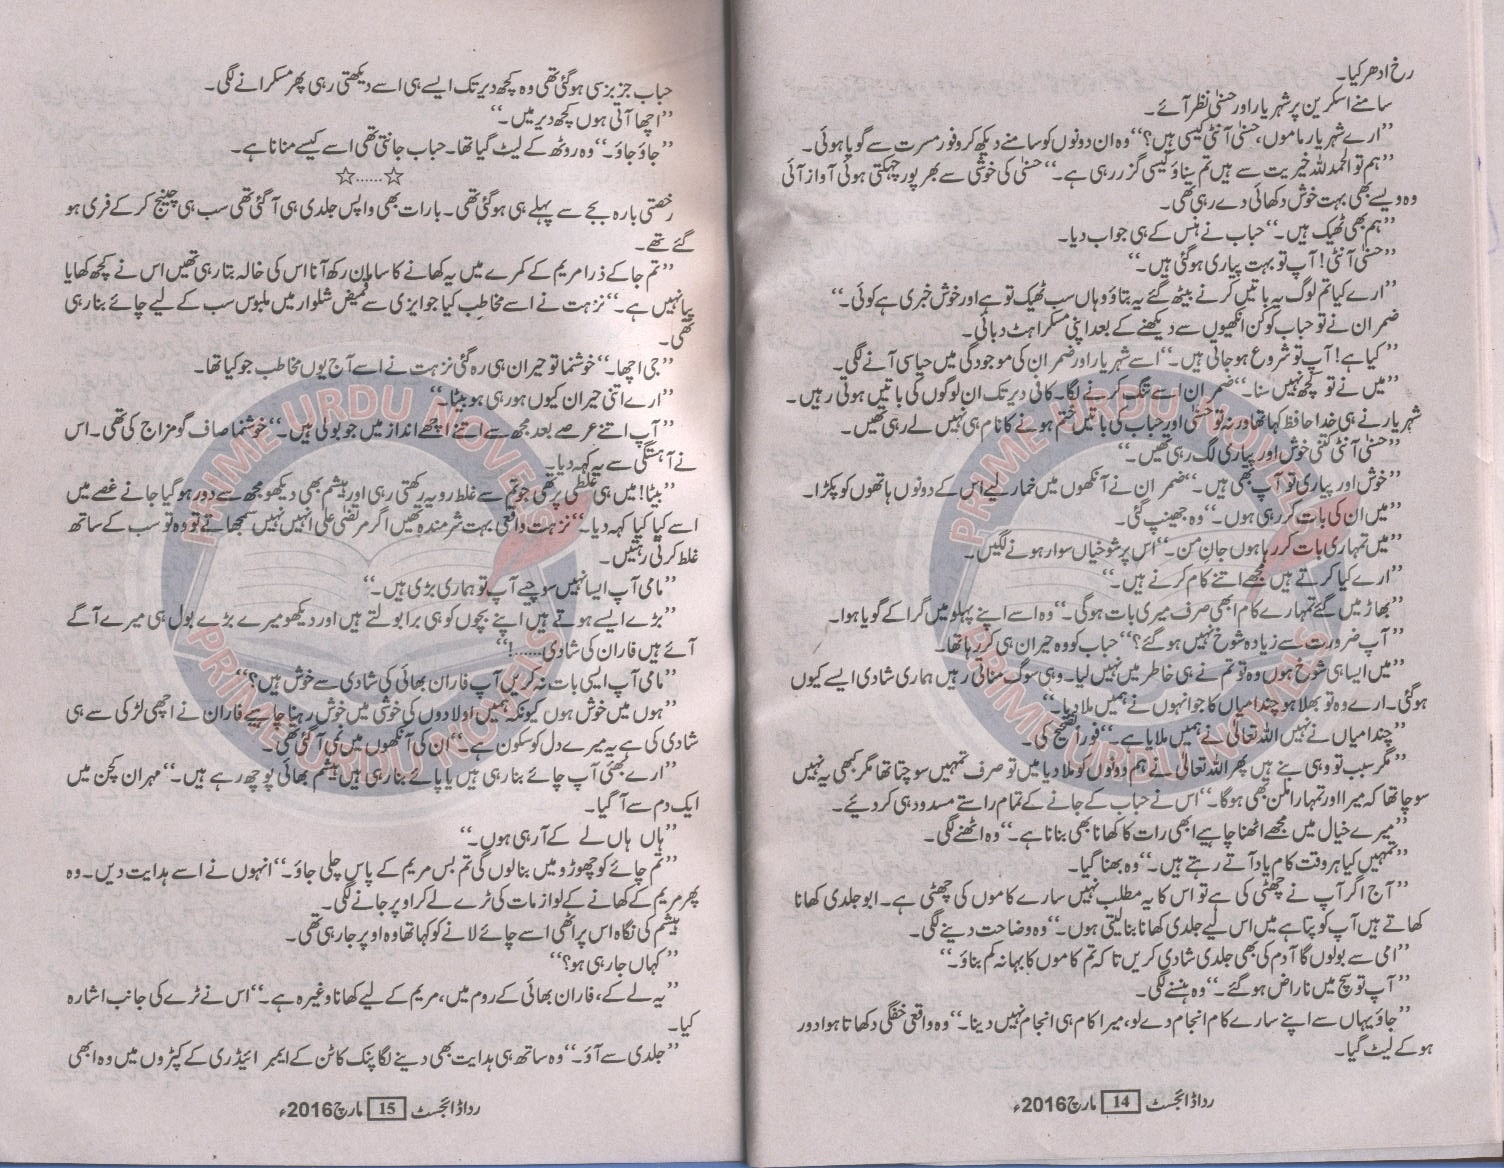 رخ ادھر کیا۔
سامنے اسکرین پر شہریار اور حسنیٰ نظر آئے۔
’’ارے شہریار ماموں، حسنیٰ آنٹی کیسی ہیں؟‘‘ وہ ان دونوں کو سامنے دیکھ کر وفور مسرت سے گویا ہوئی۔
’’ہم تو الحمدللہ خیریت سے ہیں تم بتاؤ کیسی گزر رہی ہے۔‘‘ حسنیٰ کی خوشی سے بھرپور چہکتی ہوئی آواز آئی
وہ ویسے بھی بہت خوش دکھائی دے رہی تھی۔
’’ہم بھی ٹھیک ہیں۔‘‘ حباب نے ہنس کے ہی جواب دیا۔
’’حسنیٰ آنٹی! آپ تو بہت پیاری ہوگئی ہیں۔‘‘
’’ارے کیا تم لوگ یہ باتیں کرنے بیٹھ گئے یہ بتاؤ وہاں سب ٹھیک تو ہے اور خوش خبری ہے کوئی۔‘‘
ضمران نے تو حباب کو کن انکھیوں سے دیکھنے کے بعد اپنی مسکراہٹ دبائی۔
’’کیا ہے! آپ تو شروع ہو جاتی ہیں۔‘‘ اسے شہریار اور ضمران کی موجودگی میں حیا سی آنے لگی۔
’’میں نے تو کچھ نہیں سنا۔‘‘ ضمران اسے تنگ کرنے لگا۔ کافی دیر تک ان لوگوں کی باتیں ہوتی رہیں۔
شہریار نے ہی خدا حافظ کہا تھا ورنہ تو حسنیٰ اور حباب کی باتیں ختم ہونے کا نام ہی نہیں لے رہی تھیں۔
’’حسنیٰ آنٹی کتنی خوش اور پیاری لگ رہی تھیں۔‘‘
’’خوش اور پیاری تو آپ بھی ہیں۔‘‘ ضمران نے آنکھوں میں خمار لیے اس کے دونوں ہاتھوں کو پکڑا۔
’’میں ان کی بات کر رہی ہوں۔‘‘ وہ جھینپ گئی۔
’’میں تمہاری بات کر رہا ہوں جانِ من۔‘‘ اس پر شوخیاں سوار ہونے لگیں۔
’’ارے کیا کرتے ہیں مجھے اتنے کام کرنے ہیں۔‘‘
’’بھاڑ میں گئے تمہارے کام ابھی صرف میری بات ہوگی۔‘‘ وہ اسے اپنے پہلو میں گرا کے گویا ہوا۔
’’آپ ضرورت سے زیادہ شوخ نہیں ہوگئے؟‘‘ حباب کو وہ حیران ہی کر رہا تھا۔
’’میں ایسا ہی شوخ ہوں وہ تو تم نے ہی خاطر میں نہیں لیا۔ وہی سوگ مناتی رہیں ہماری شادی ایسے کیوں
ہوگئی۔ ارے وہ تو بھلا ہو چندا میاں کا جو انہوں نے ہمیں ملا دیا۔‘‘
’’چندا میاں نے نہیں اللہ تعالیٰ نے ہمیں ملایا ہے۔‘‘ فوراً تصحیح کی۔
’’مگر سبب تو وہی بنے ہیں پھر اللہ تعالیٰ نے ہم دونوں کو ملا دیا میں تو صرف تمہیں سوچتا تھا مگر کبھی یہ نہیں
سوچا تھا کہ میرا اور تمہارا ملن بھی ہوگا۔‘‘ اس نے حباب کے جانے کے تمام راستے مسدود ہی کر دیئے۔
’’میرے خیال میں مجھے اٹھنا چاہیے ابھی رات کا کھانا بھی بنانا ہے۔‘‘ وہ اٹھنے لگی۔
’’تمہیں کیا ہر وقت کام یاد آتے رہتے ہیں۔‘‘ وہ بھنا گیا۔
’’آج اگر آپ نے چھٹی کی ہے تو اس کا یہ مطلب نہیں سارے کاموں کی چھٹی ہے۔ ابو جلدی کھانا
کھاتے ہیں آپ کو پتا ہے میں اس لیے جلدی کھانا بنا لیتی ہوں۔‘‘ وہ وضاحت دینے لگی۔
’’امی سے بولوں گا آدم کی بھی جلدی شادی کریں تا کہ تم کاموں کا بہانہ کم بناؤ۔‘‘
’’آپ تو سچ میں ناراض ہوگئے۔‘‘ وہ ہنسنے لگی۔
’’جاؤ یہاں سے اپنے سارے کام انجام دے لو، میرا کام ہی انجام نہیں دینا۔‘‘ وہ واقعی خفگی دکھاتا ہوا دور
ہو کے لیٹ گیا۔
ردا ڈائجسٹ 14 مارچ 2016ء
حباب جزبز سی ہوگئی تھی وہ کچھ دیر تک ایسے ہی اسے دیکھتی رہی پھر مسکرانے لگی۔
’’اچھا آتی ہوں کچھ دیر میں۔‘‘
’’جاؤ جاؤ۔‘‘ وہ روٹھ کے لیٹ گیا تھا۔ حباب جانتی تھی اسے کیسے منانا ہے۔
☆......☆
رخصتی بارہ بجے سے پہلے ہی ہوگئی تھی۔ بارات بھی واپس جلدی ہی آگئی تھی سب ہی چینج کر کے فری ہو
گئے تھے۔
’’تم جا کے ذرا مریم کے کمرے میں یہ کھانے کا سامان رکھ آنا اس کی خالہ بتا رہی تھیں اس نے کچھ کھایا
پیا نہیں ہے۔‘‘ نزہت نے اسے مخاطب کیا جو ایزی سے قمیض شلوار میں ملبوس سب کے لیے چائے بنا رہی
تھی۔
’’جی اچھا۔‘‘ خوشنما تو حیران ہی رہ گئی نزہت نے اسے آج یوں مخاطب جو کیا تھا۔
’’ارے اتنی حیران کیوں ہو رہی ہو بیٹا۔‘‘
’’آپ اتنے عرصے بعد مجھ سے اتنے اچھے انداز میں جو بولی ہیں۔‘‘ خوشنما صاف گو مزاج کی تھی۔ اس
نے آہستگی سے یہ کہہ دیا۔
’’بیٹا! میں ہی غلطی پر تھی جو تم سے غلط رویہ رکھتی رہی اور ہیشم بھی دیکھو مجھ سے دور ہو گیا جانے غصے میں
اسے کیا کیا کہہ دیا۔‘‘ نزہت واقعی بہت شرمندہ تھیں اگر مرتضیٰ علی انہیں نہیں سمجھاتے تو وہ تو سب کے ساتھ
غلط کرتی رہتیں۔
’’مامی آپ ایسا نہیں سوچیے آپ تو ہماری بڑی ہیں۔‘‘
’’بڑے ایسے ہوتے ہیں اپنے بچوں کو ہی برا بولتے ہیں اور دیکھو میرے بڑے بول ہی میرے آگے
آئے ہیں فاران کی شادی......!‘‘
’’مامی آپ ایسی بات نہ کریں آپ فاران بھائی کی شادی سے خوش ہیں؟‘‘
’’ہوں میں خوش ہوں کیونکہ ہمیں اولادوں کی خوشی میں خوش رہنا چاہیے فاران نے اچھی لڑکی سے ہی
شادی کی ہے یہ میرے دل کو سکون ہے۔‘‘ ان کی آنکھوں میں نمی آگئی تھی۔
’’ارے بھئی آپ چائے بنا رہی ہیں یا پائے بنا رہی ہیں ہیشم بھائی پوچھ رہے ہیں۔‘‘ مہران کچن میں
ایک دم سے آگیا۔
’’ہاں ہاں لے کے آ رہی ہوں۔‘‘
’’تم چائے کو چھوڑو میں بنا لوں گی تم بس مریم کے پاس چلی جاؤ۔‘‘ انہوں نے اسے ہدایت دیں۔ وہ
پھر مریم کے کھانے کے لوازمات کی ٹرے لے کر اوپر جانے لگی۔
ہیشم کی نگاہ اس پر اٹھی اسے چائے لانے کو کہا تھا وہ اوپر جا رہی تھی۔
’’کہاں جا رہی ہو؟‘‘
’’یہ لے کے، فاران بھائی کے روم میں، مریم کے لیے کھانا وغیرہ ہے۔‘‘ اس نے ٹرے کی جانب اشارہ
کیا۔
’’جلدی سے آؤ۔‘‘ وہ ساتھ ہی ہدایت بھی دینے لگا پنک کاٹن کے ایمبرائیڈری کے کپڑوں میں وہ ابھی
ردا ڈائجسٹ 15 مارچ 2016ء
PRIME URDU NOVELS
PRIME URDU NOVELS
PRIME URDU NOVELS
PRIME URDU NOVELS